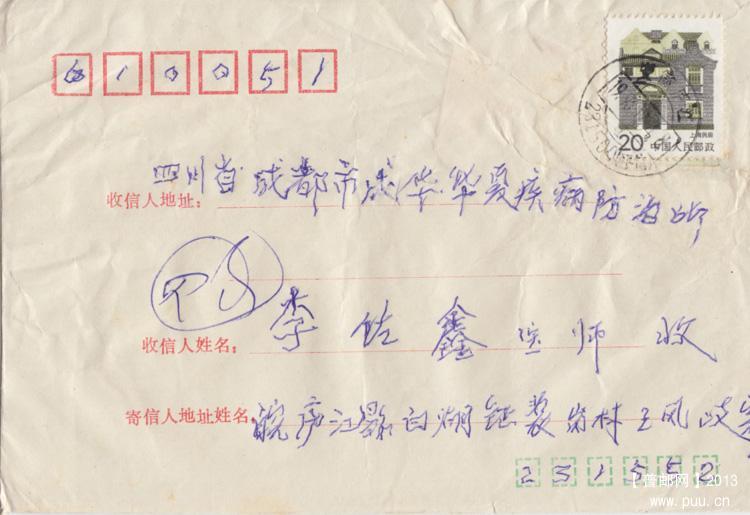 610051
上海民居
20 中国人民邮政
四川省成都市成华华夏疾病防治所
收信人地址：
收信人姓名：李佶鑫医师收
寄信人地址姓名 皖庐江县白湖镇裴岗村王凤岐寄
231552
【普邮网】2013
www.puu.cn